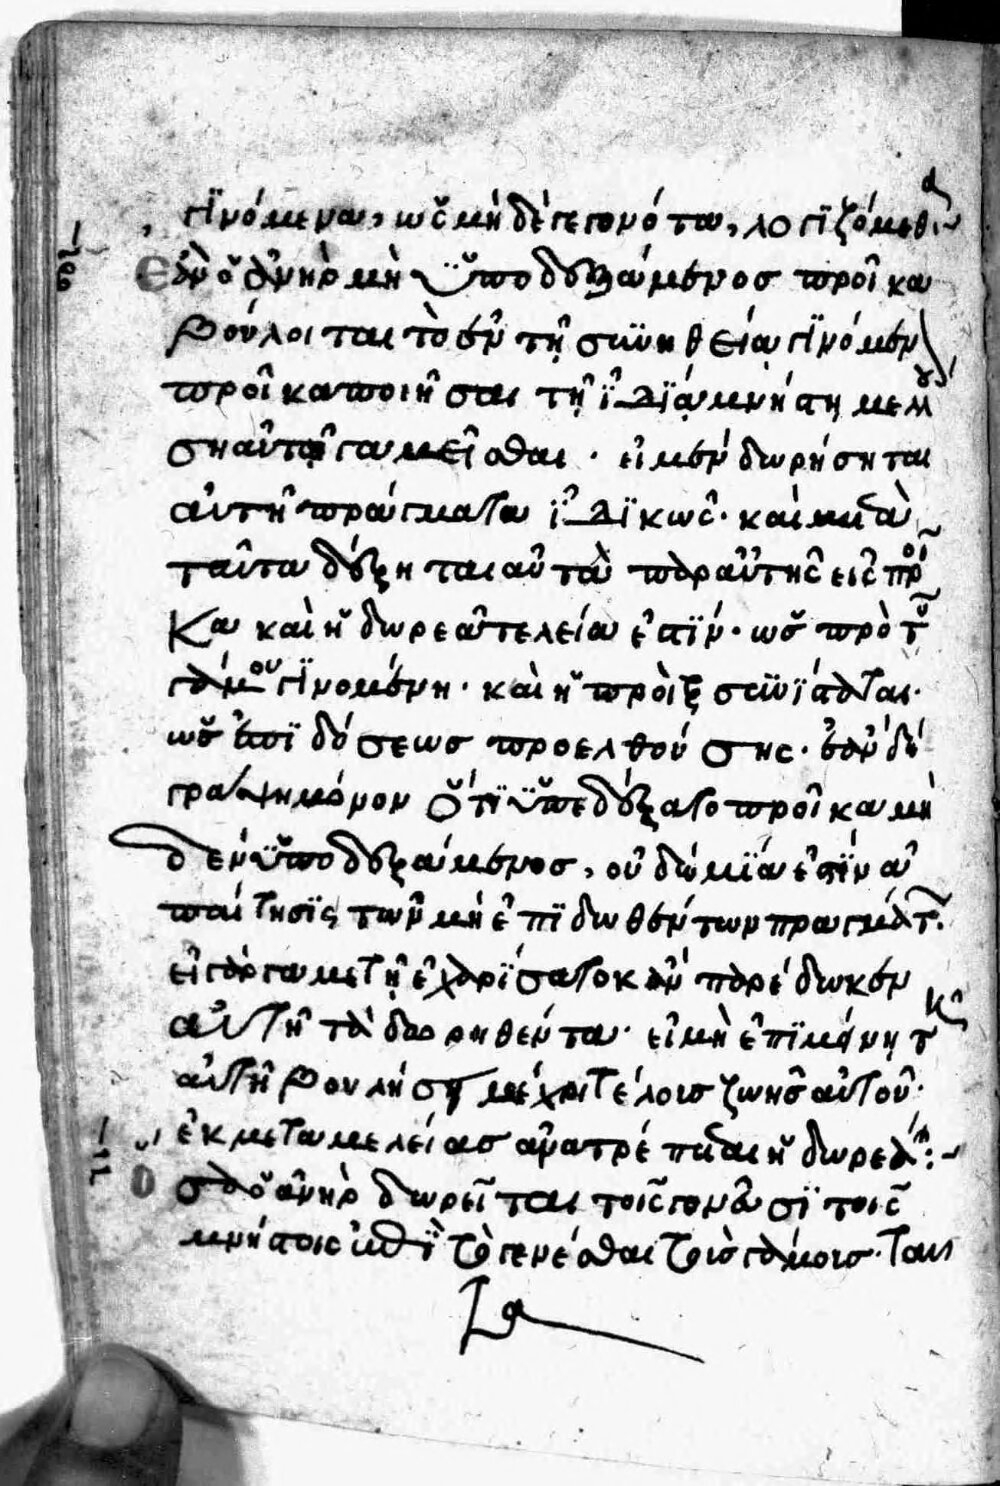 γϊνόμενα, ὡς μὴ δὲ γεγονότα, λογϊζόμεθα:~
Ἐὰν ὁ ἀνὴρ μὴ ϋποδεξάμενος προῖκα
βούλοιται τὸ ἐν τῇ συνηθεία γϊνόμενον
προῖκα ποιῆσαι τῇ ϊδϊᾳ μνήστῃ
αὐτῷ γαμεῖσθαι · εἰ μὲν δωρήσηται
αὐτῆ πράγματα ϊδϊκῶς · καὶ μετὰ
ταῦτα δέξηται αὐτὰ παρ αὐτῆς εἰς προῖ
κα καὶ ἡ δωρεὰ τελεία ἐστϊν · ὡς πρὸ τοῦ
γάμου γϊνομένη · καὶ ἡ προὶξ συνϊσταται ·
ὡς ἐπϊ δόσεως προελθούσης · ἐὰν δὲ
γράψη μόνον ὅτϊ ϋπεδέξατο προῖκα μὴ
δὲν ϋποδεξάμενος, οὐδεμϊα ἐστϊν ἀ
παίτησϊς τῶν μὴ ἐπϊδωθέντων πραγμάτων.
εἰ γὰρ γαμετῇ ἐχαρϊσατο κἂν παρέδωκεν
αὐτῇ τὰ δωρηθέντα · εἰ μὴ ἐπϊμένη τῆ
αὐτῆ βουλήσῃ μέχρι τέλους ζωῆς αὐτοῦ ·
ἐκ μεταμελείας ἀνατρέπεται ἡ δωρεά:~
ὅσα ὁ ἀνὴρ δωρεῖται τοῖς γονεῦσϊ τοῖς
μνήστοις ἐπϊ τὸ γενέσθαι τοὺς γάμους · ταυ
τα